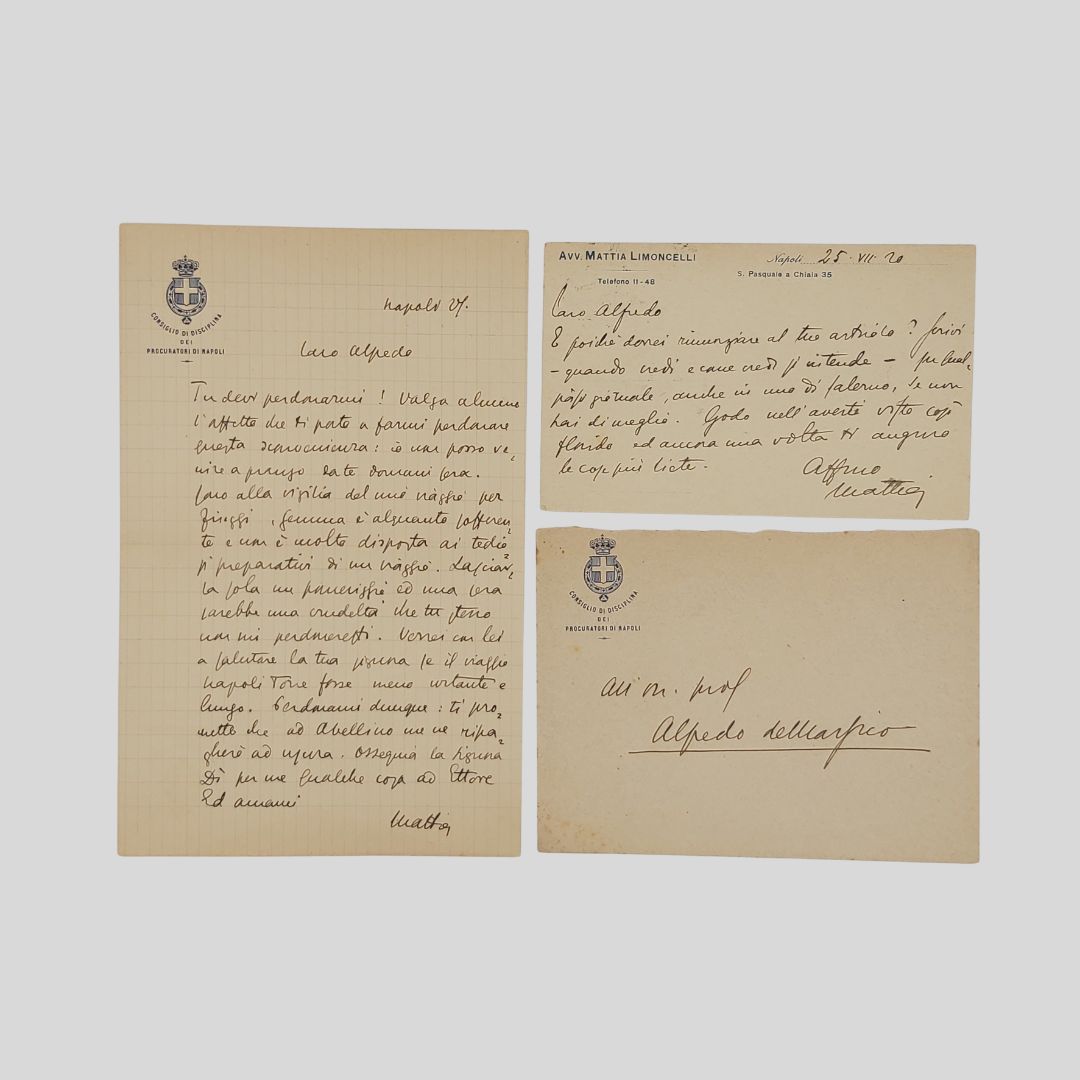 CONSIGLIO DI DISCIPLINA
DEI
PROCURATORI DI NAPOLI
Napoli 27.
Caro Alfredo
Tu devi perdonarmi! Valga almeno
l'affetto che ti porto a farmi perdonare
questa sconvenienza: io non posso ve=
nire a pranzo da te domani sera.
Sono alla vigilia del mio viaggio per
Fiuggi, Gemma è alquanto sofferen=
te e non è molto disposta ai tedio=
si preparativi di un viaggio. Lasciar=
la sola un pomeriggio ed una sera
sarebbe una crudeltà che tu stesso
non mi perdoneresti. Verrei con lei
a salutare la tua signora se il viaggio
Napoli Torre fosse meno urtante e
lungo. Perdonami dunque: ti pro=
metto che ad Avellino me ne ripa=
gherò ad usura. Ossequia la signora
Dì per me qualche cosa ad Ettore
Ed amami
Mattia
AVV. MATTIA LIMONCELLI
Telefono 11-48
Napoli 25·VII·20
S. Pasquale a Chiaia 35
Caro Alfredo
E poiché dovrei rinunziare al tuo articolo? Scrivi
- quando credi e come credi si intende - su qual=
siasi giornale, anche in uno di Salerno, se non
hai di meglio. Godo nell'averti visto così
florido ed ancora una volta ti auguro
le cose più liete.
Affmo
Mattia
CONSIGLIO DI DISCIPLINA
DEI
PROCURATORI DI NAPOLI
All'on. prof
Alfredo deMarsico